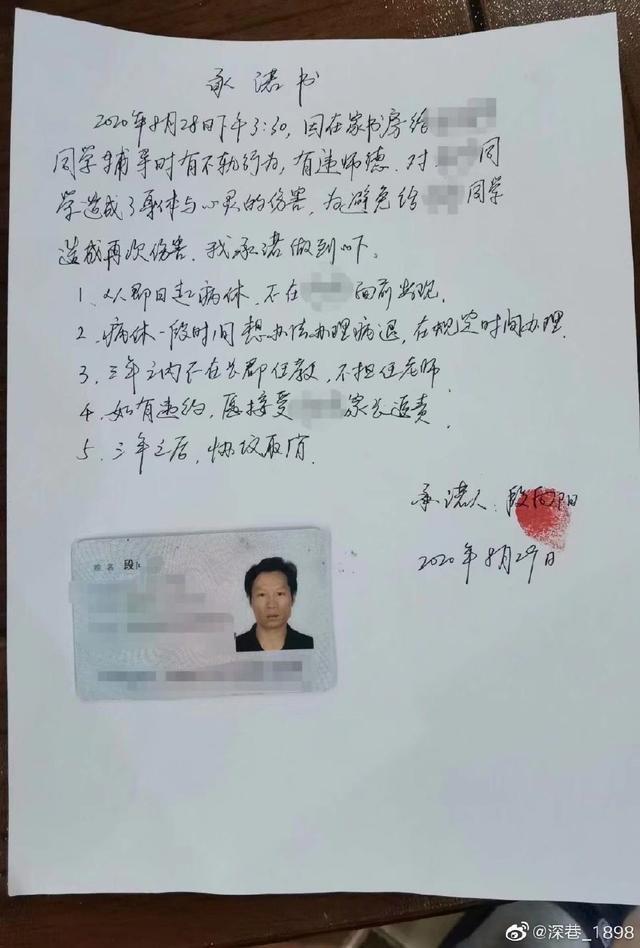 承诺书
2020年8月28日下午3:30,因在家书房给
同学辅导时有不轨行为,有违师德.对 同
学造成了身体与心灵的伤害,为避免给 同学
造成再次伤害.我承诺做到以下.
1、从即日起病休,不在 面前出现.
2、病休一段时间想办法办理病退,在规定时间办理.
3、三年之内不在长郡任教,不担任老师.
4、如有违约,愿接受 家长追责.
5、三年之后,协议取消.
承诺人:段向阳
2020年8月29日
姓名 段
@深巷_1898